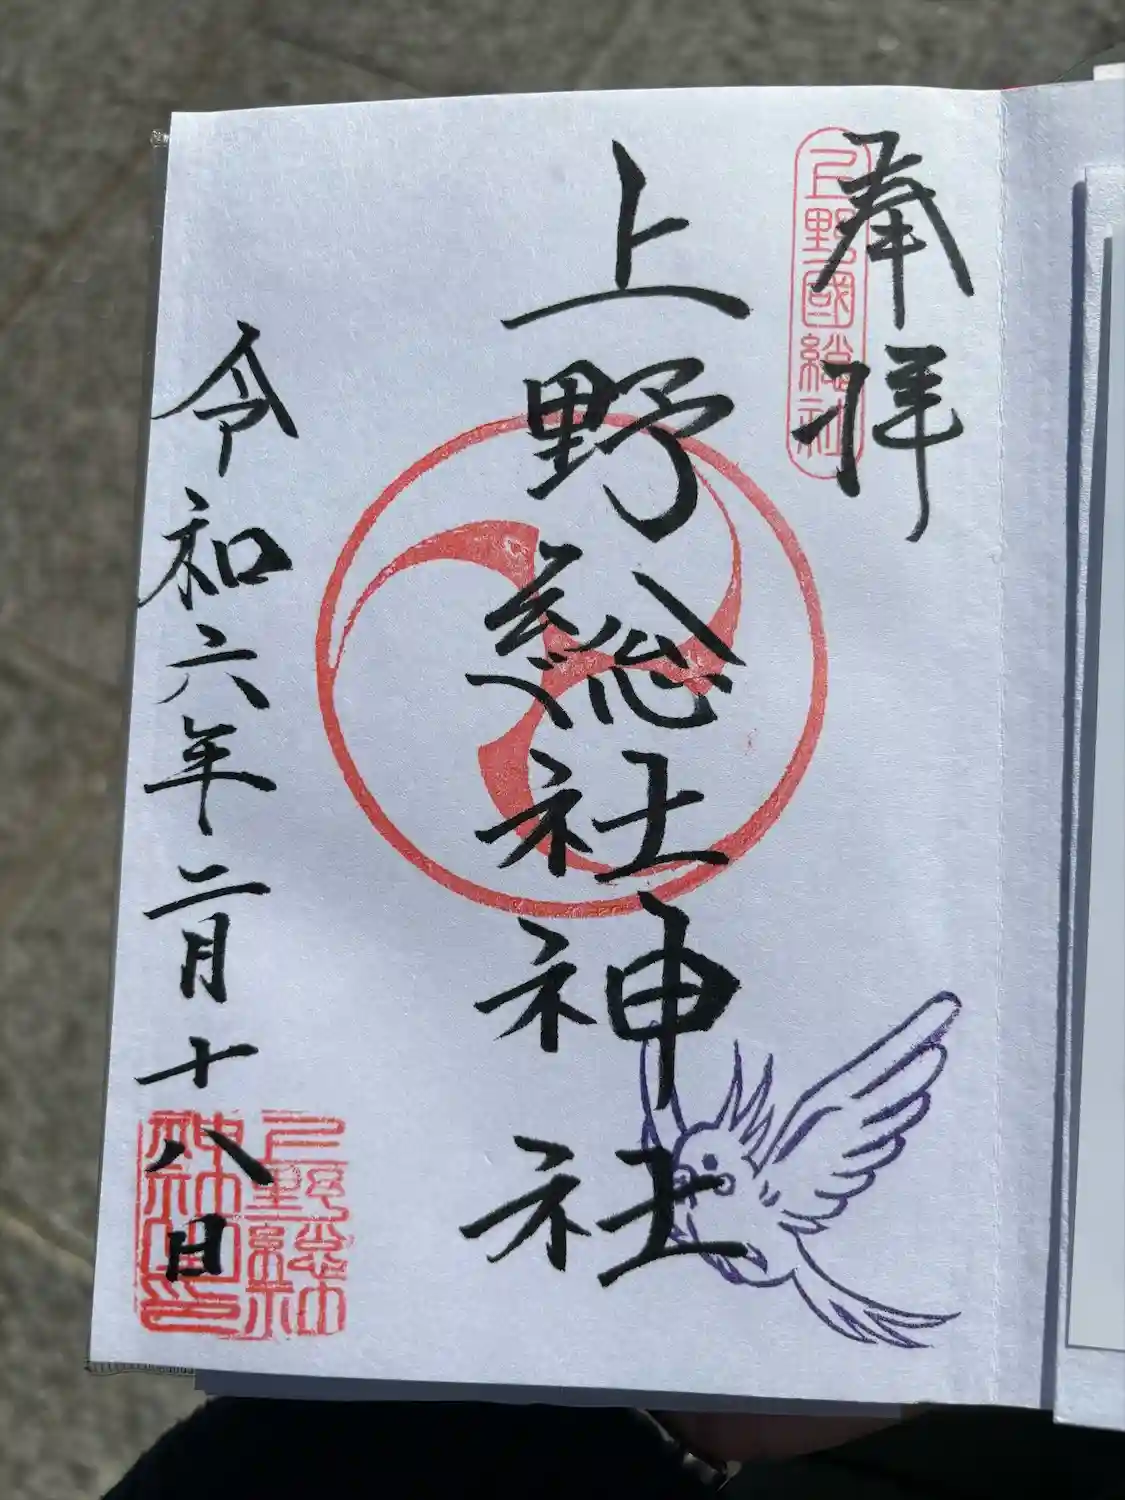 奉拝
上野國総社
上野総社神社
令和六年二月十八日
上野総社
神社